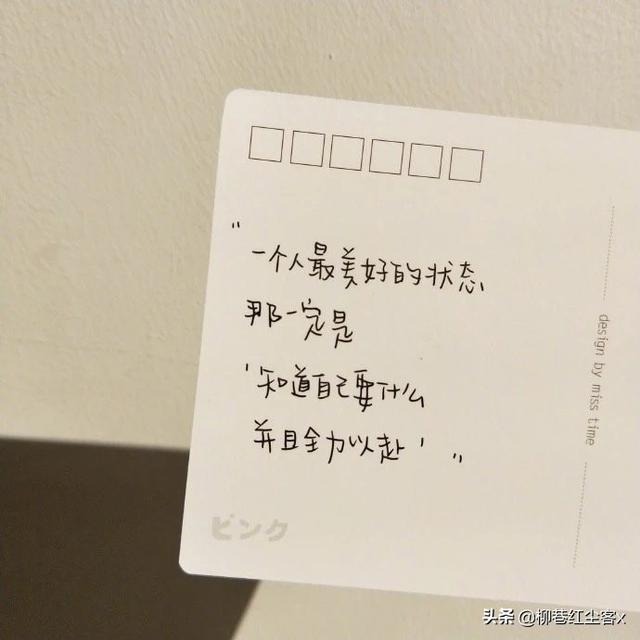 "一个人最美好的状态
那一定是
'知道自己要什么
并且全力以赴' "
design by miss time
ピンク
头条 @柳巷红尘客x